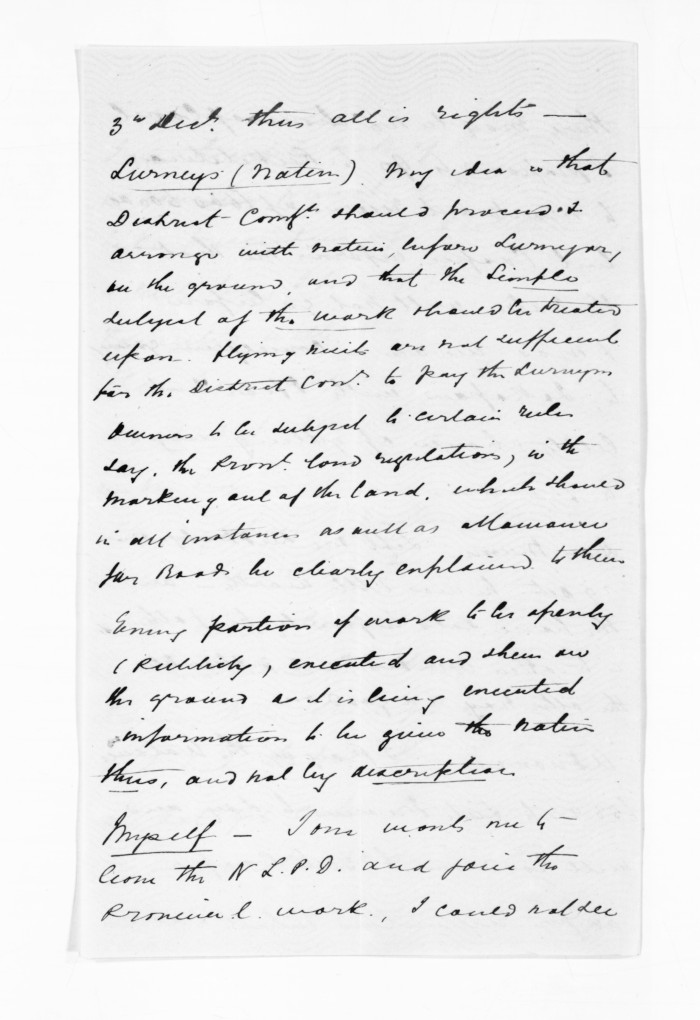 3rd Decr. thus all is right —
Surveys (Native). My idea is that
District Comr. should proceed &
arrange with natives, before Surveyor,
on the ground, and that the Simple
subject of the work should be treated
upon. Flying visits are not sufficient
for the District Comr. to pay the Surveys
Owners to be subject to certain rules
say, the Provl. land regulations, in the
marking out of the land. which should
in all instances as well as allowance
for Roads be clearly explained to them
Every portion of work to be openly
(Publicly, executed and shewn on
the ground as it is being executed
information to be given the native
thus, and not by description
Myself — wants me to
leave the N L. P. D. and join the
Provincial. work., I could not see